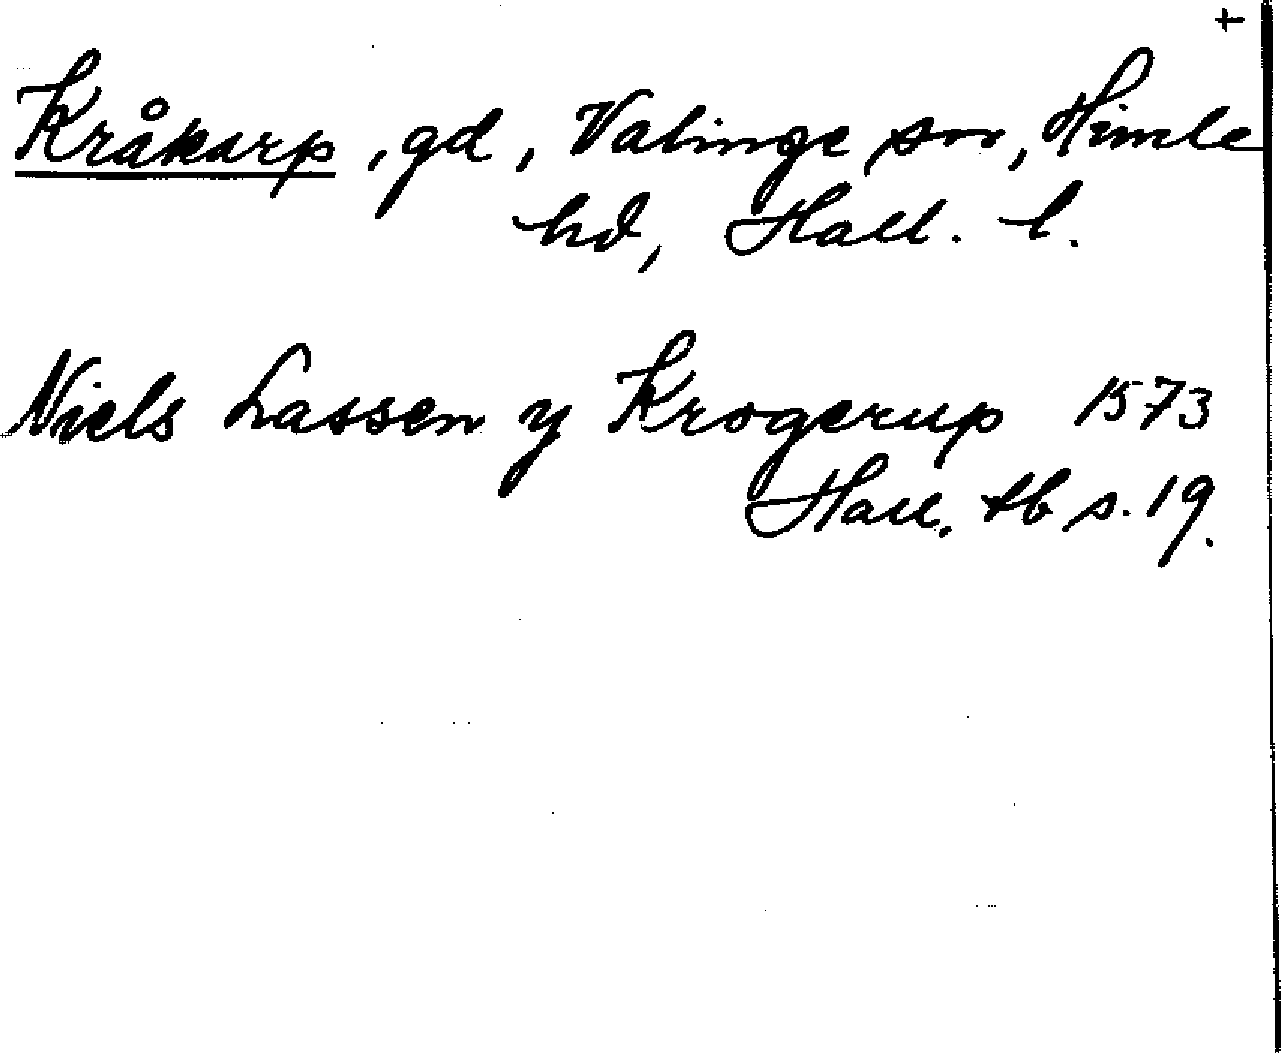 +
Kråkarp, gd, Valinge sn, Himle
hd, Hall. l.
Niels Lassen y Krogerup 1573
Hall. tb s. 19.